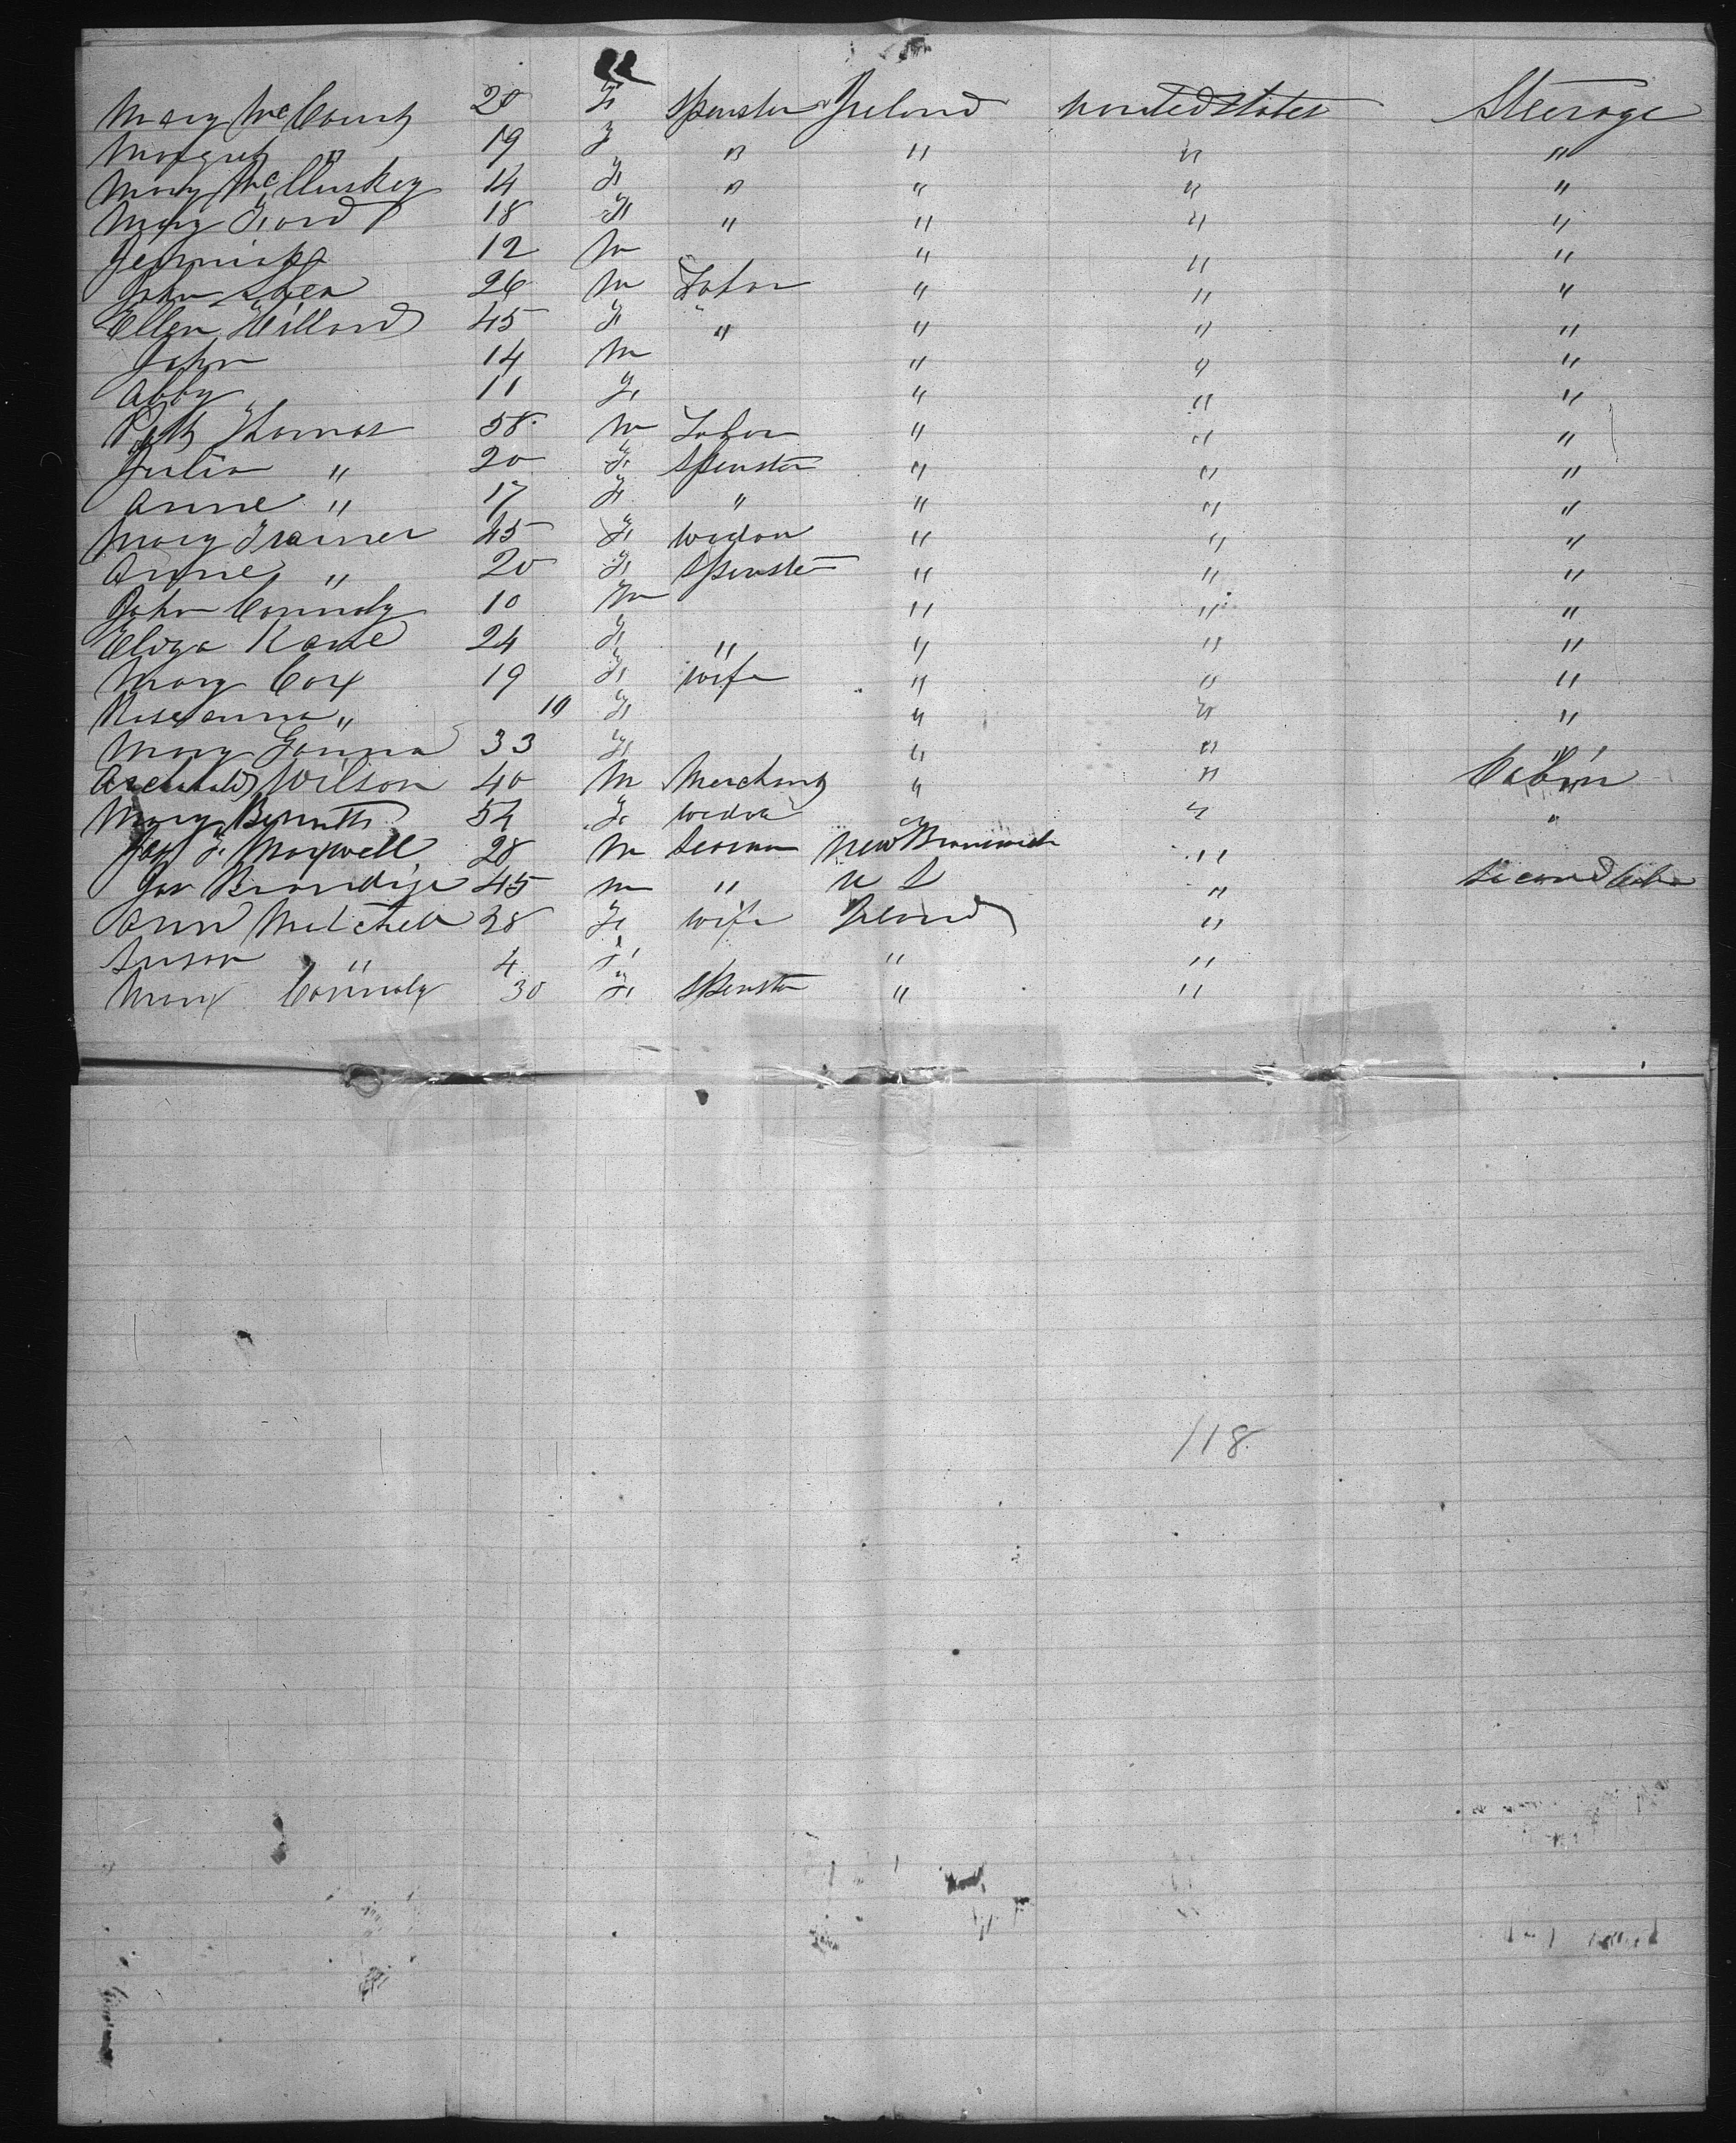 Mary McCourt 20 F Spenster Ireland United States Steerage
Margret " 19 F " " " "
Mary McCluskey 14 F " " " "
Mary Ford 18 F " " " "
12 M " " "
John Shea 26 M Labor " " "
Ellen Hillard 45 F " " " "
John 14 M " " "
Abby 11 F " " "
Thomas 58 M Labor " " "
Julia " 20 F Spenster " " "
Anne " 17 F " " " "
Mary Tramer 45 F Widow " " "
Anne " 20 F Spenster " " "
John Connoly 10 M " " "
Eliza Kane 24 F " " " "
Mary Cox 19 F Wife " " "
Roseanna " 10 F " " "
Mary 33 F " " "
Archibald Wilson 40 M Merchant " " Cabin
Mary 54 F Widow " "
Jas F. Maxwell 28 M Seaman New Brunswick "
Jas 45 M " U S " Second
Ann Mitchell 38 F Wife Ireland "
Susan " 4 F " "
Mary Connoly 30 F Spenster " "
118